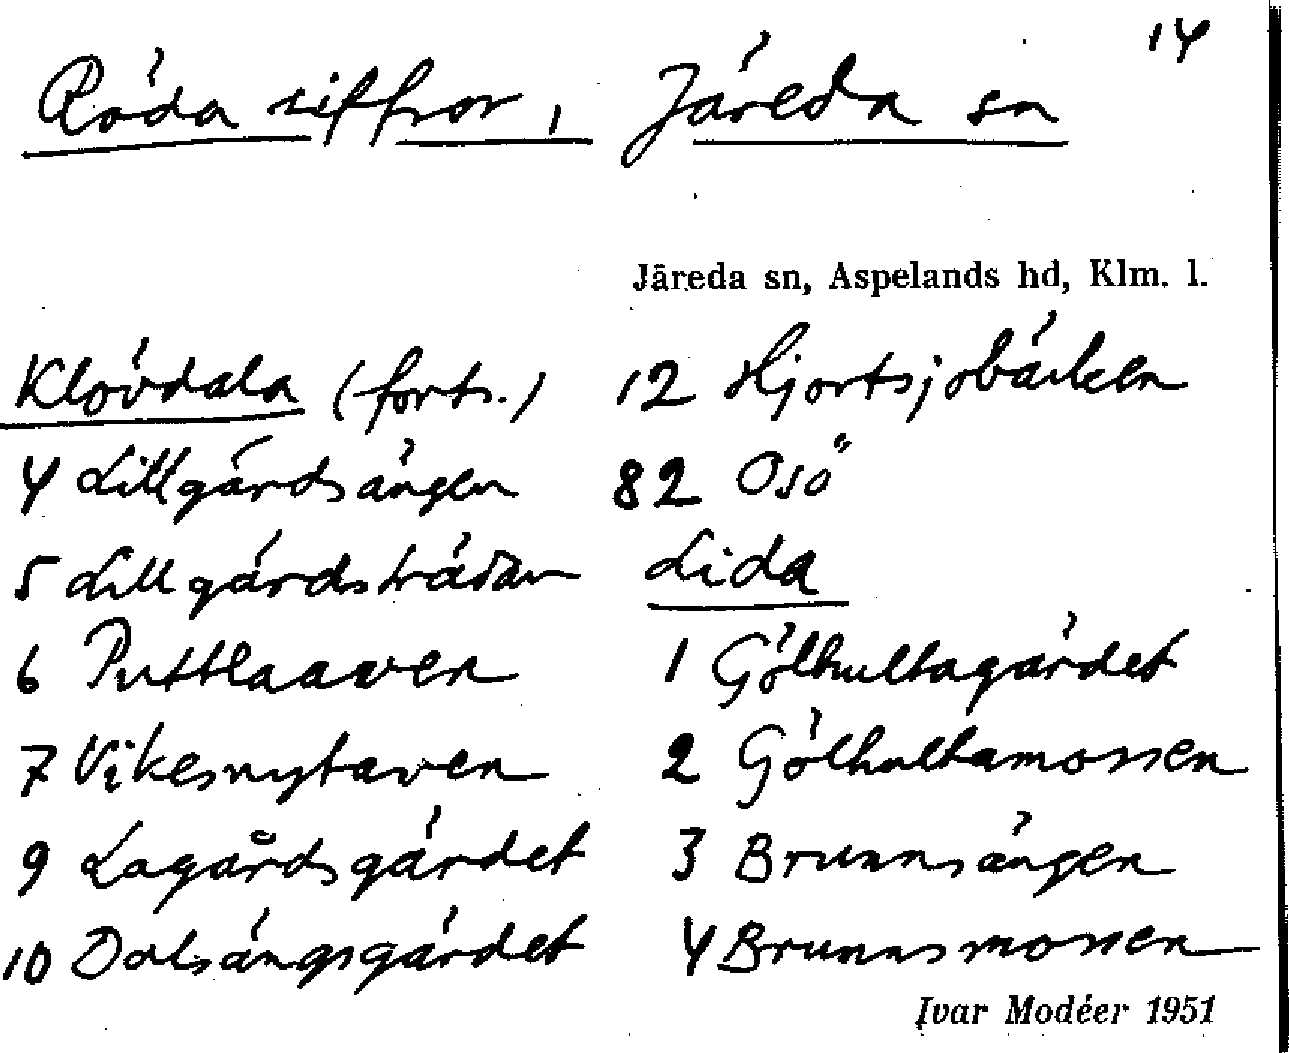 14
Röda siffror, Järeda sn
Järeda sn, Aspelands hd, Klm. l.
Klövdala (forts.)
4 Lillgärdsängen
5 Lillgärdsträdan
6 Puttlaaven
7 Vikesnytaven
9 Lagårdsgärdet
10 Dalsängsgärdet
12 Hjortsjobäcken
82 Osö
Lida
1 Gölhultagärdet
2 Gölhultamossen
3 Brunnsängen
4 Brunnsmossen
Ivar Modéer 1951